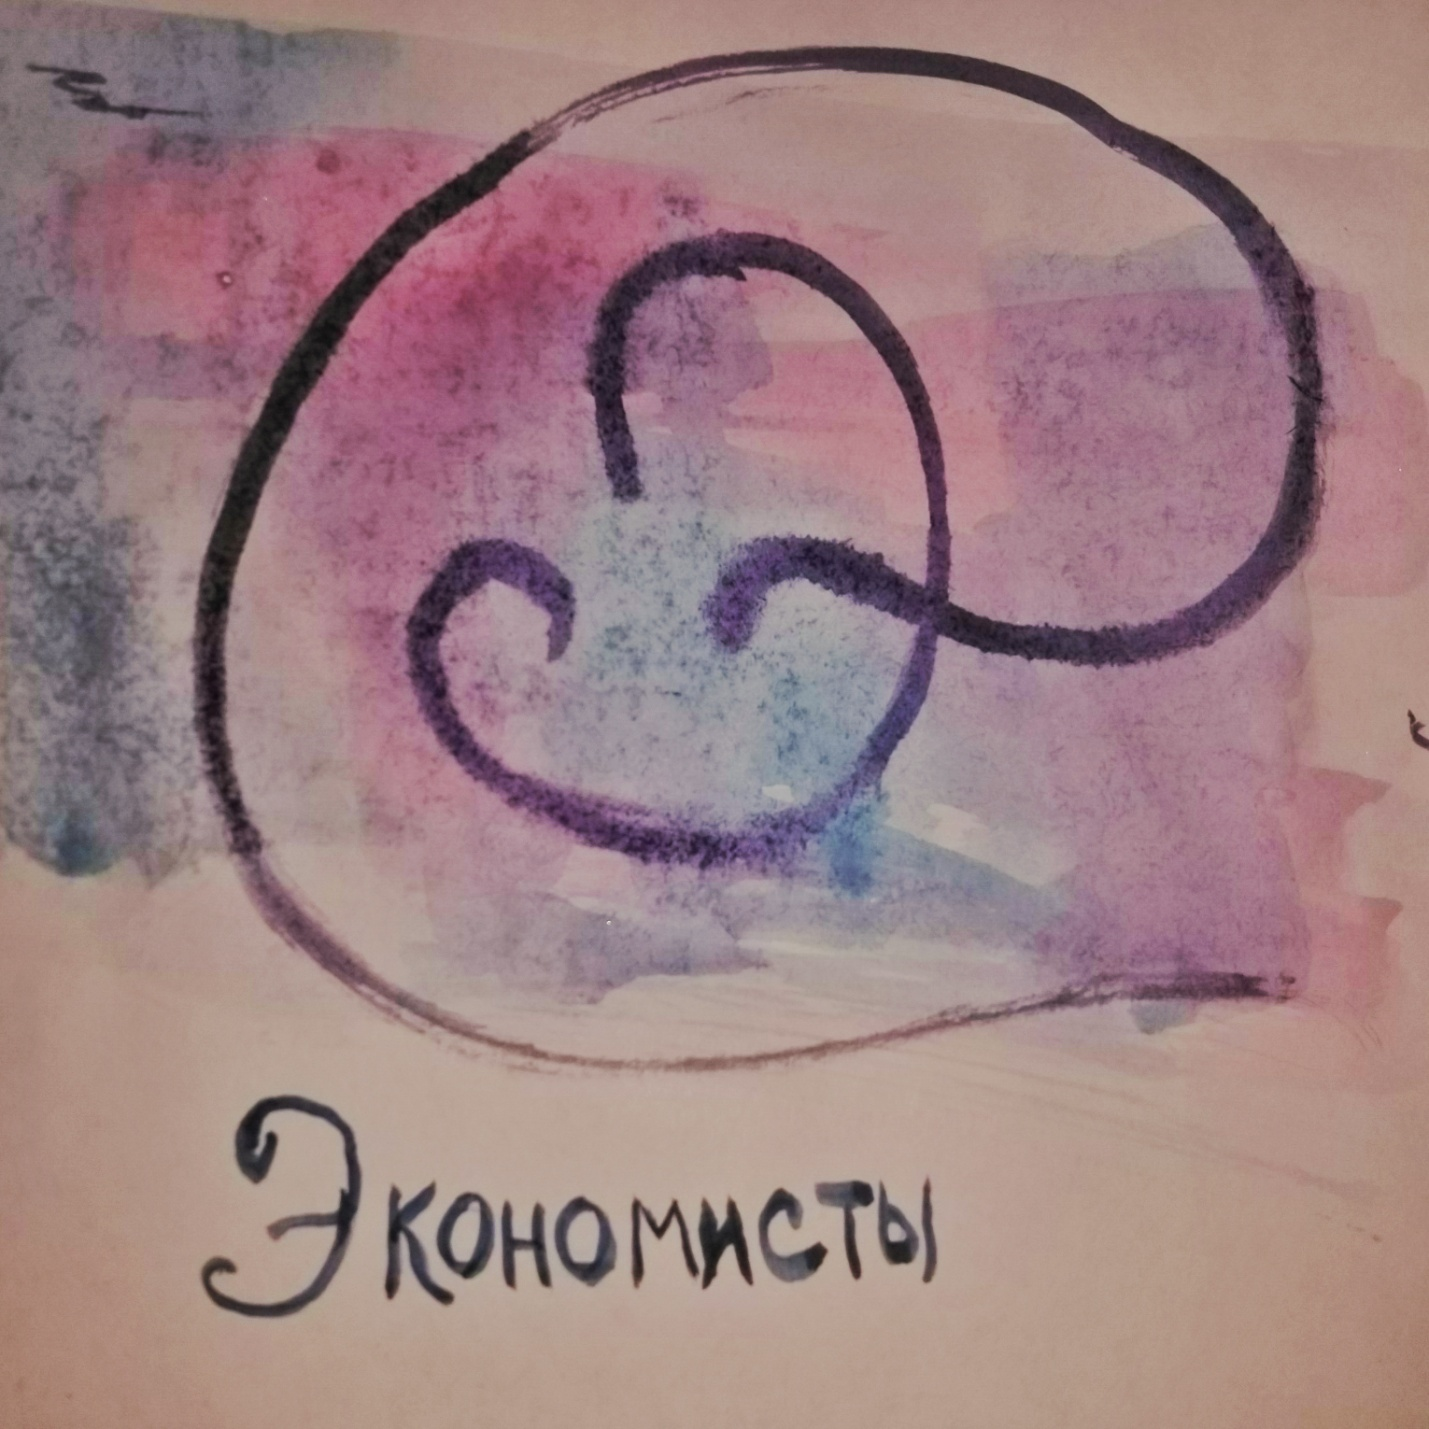 Экономисты